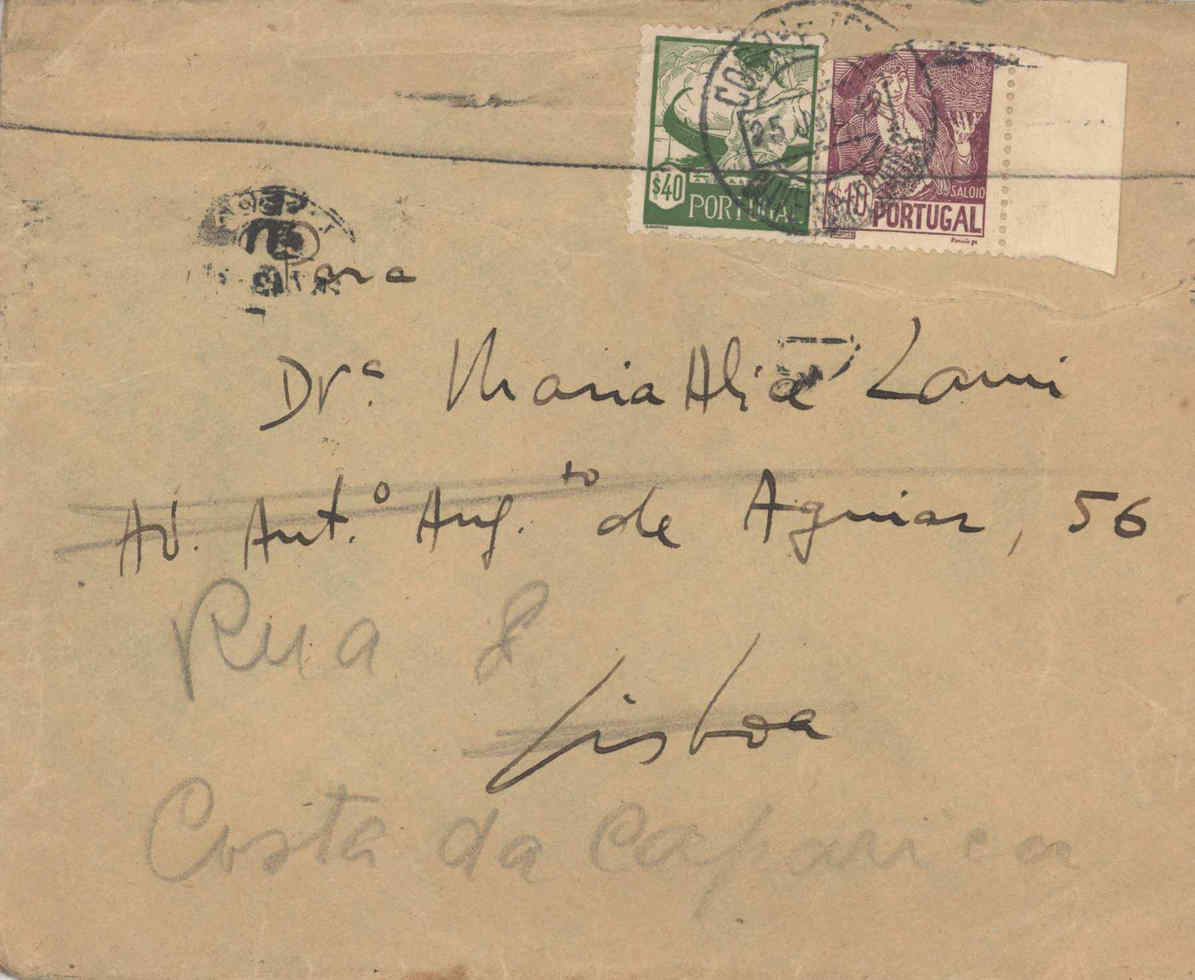 $40 PORTUGAL
SALOIO
$10 PORTUGAL
25
Drª. Maria Alice Lami
Av. Antº. Aug.to de Aguiar, 56
Rua 8
Lisboa
Costa da Caparica